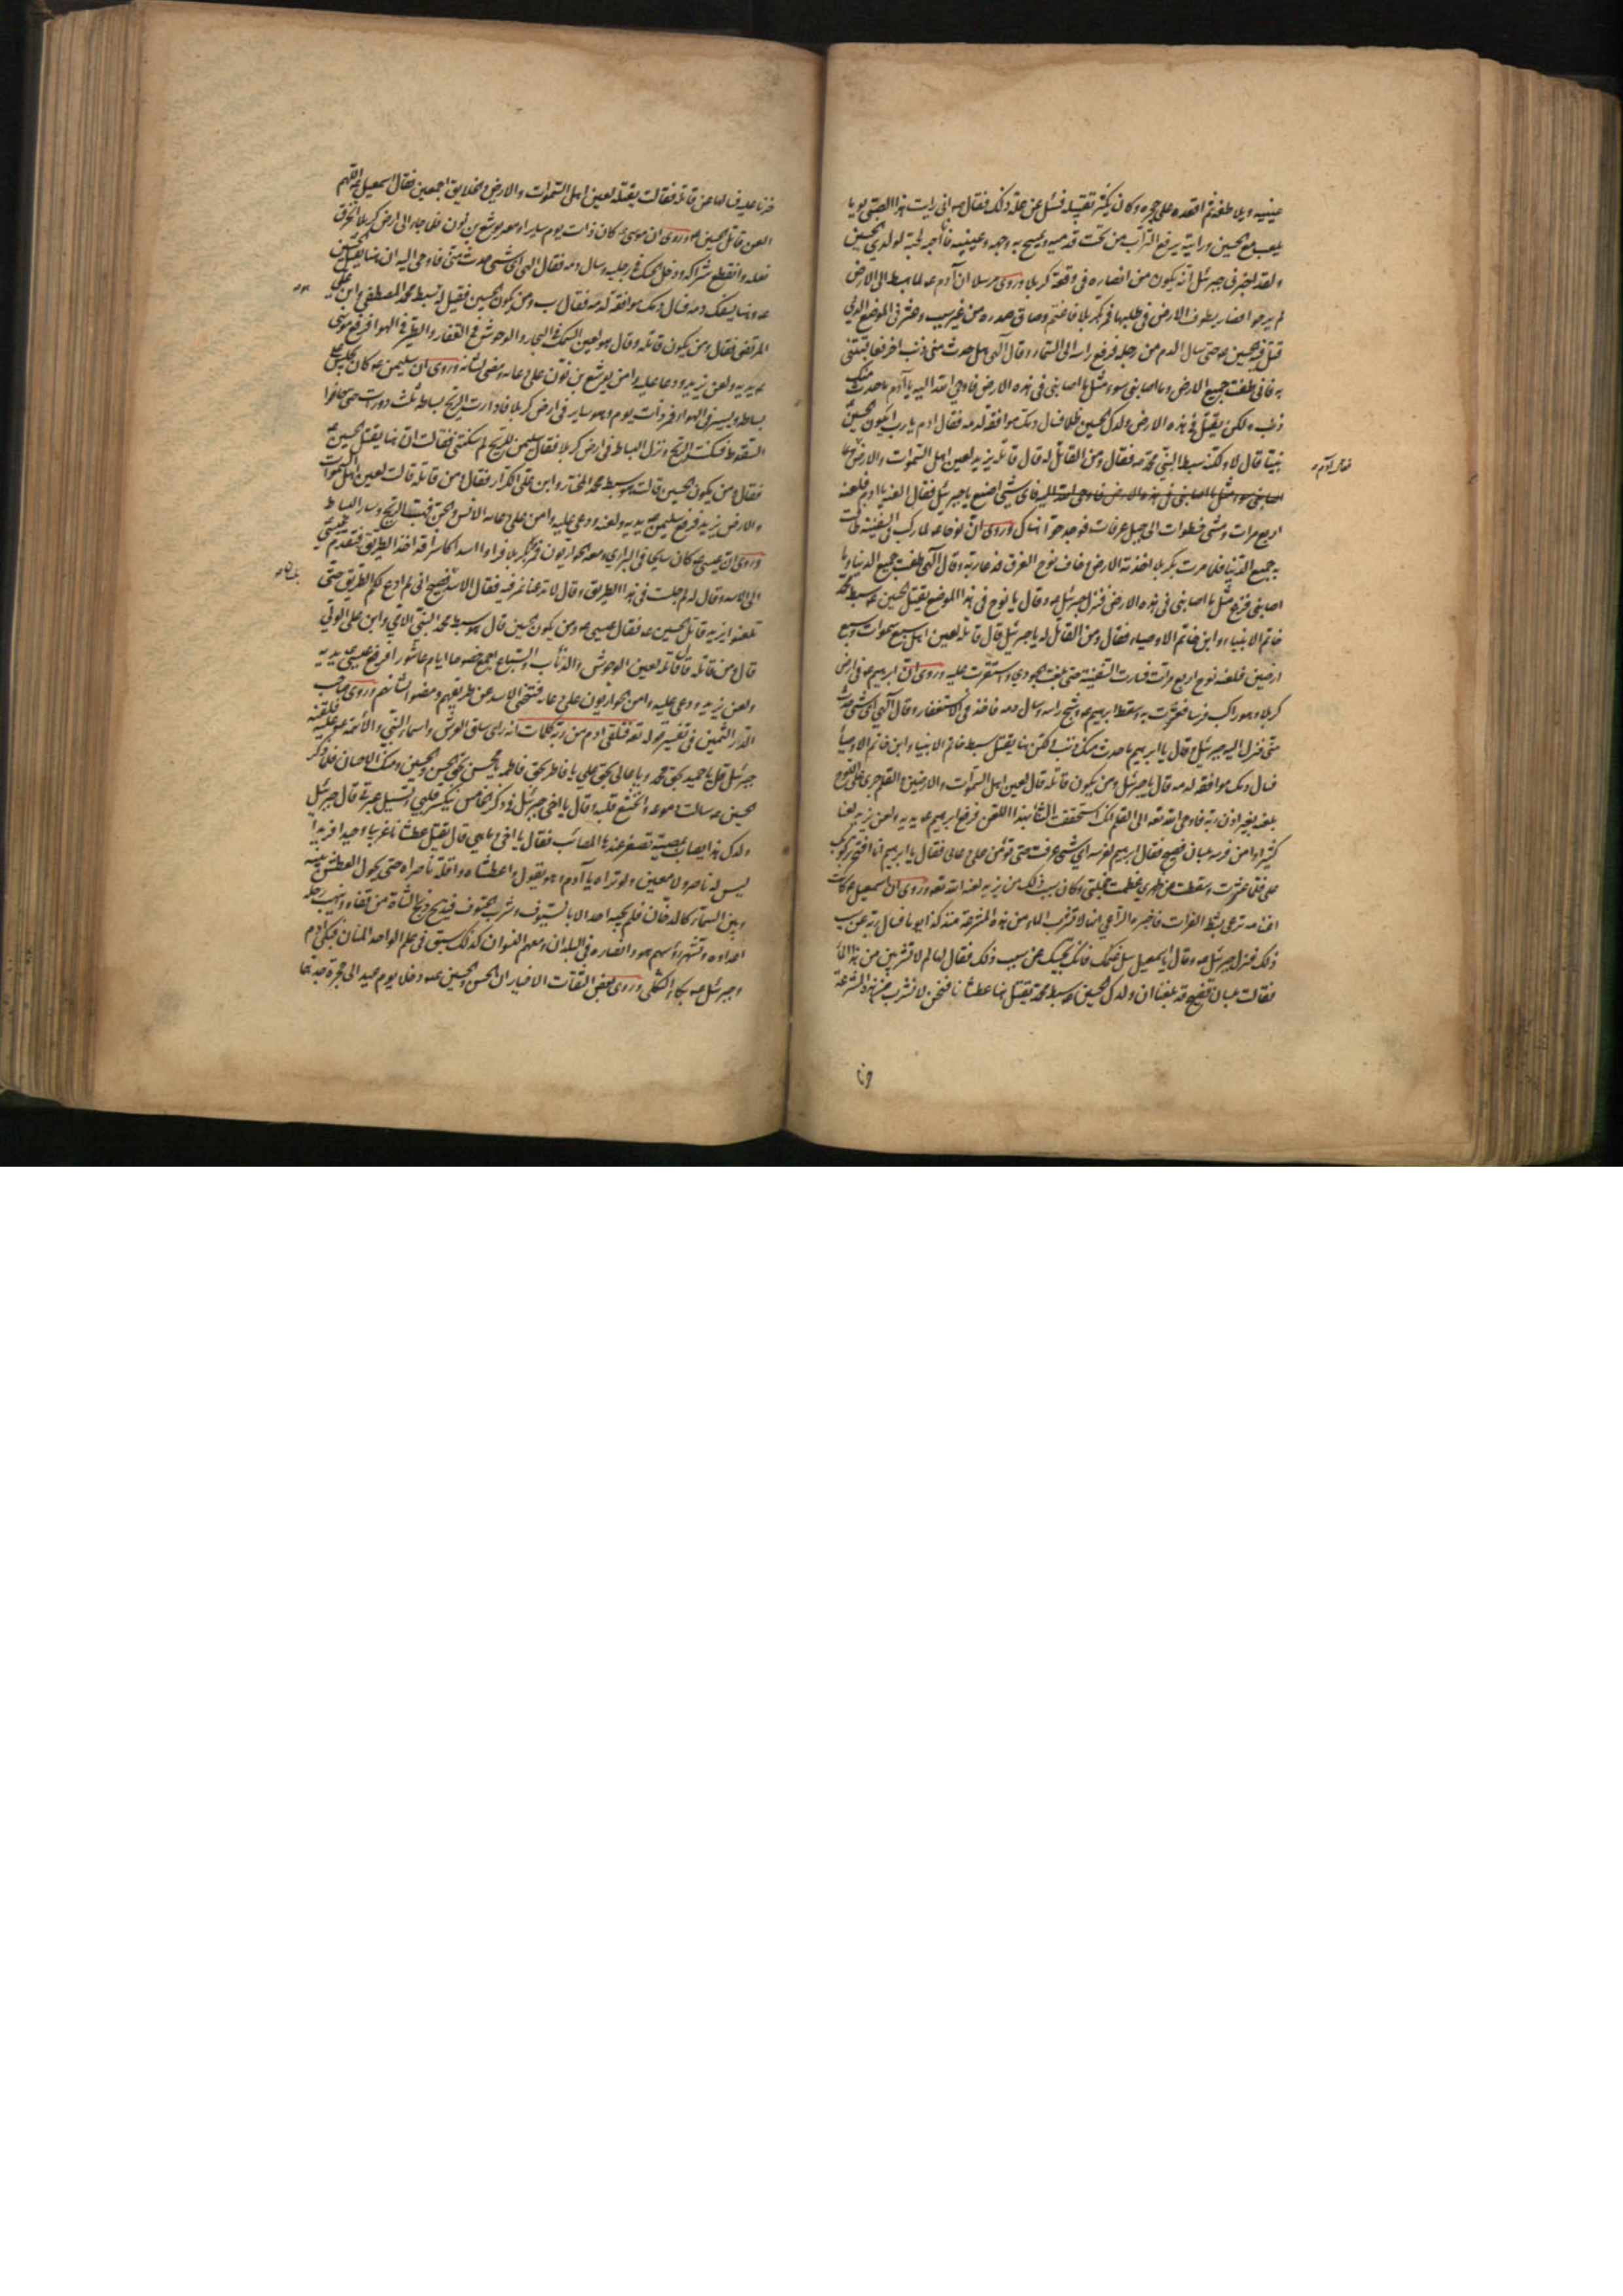 عينيه ويلاطفه ثم اقعده على حجره وكان يكثر تقبيله فسئل عن علة ذلك فقال ص اني رايت هذا الصبي يوما
يلعب مع الحسين ورايته يرفع التراب من تحت قدميه ويمسح به وجهه وعينيه فانا احبه لحبه لولدي الحسين
ولقد اخبرني جبرئيل انه يكون من انصاره في وقعة كربلا وروى مرسلا ان آدم ع لما هبط الى الارض
لم ير حوا فصار يطوف الارض في طلبها فمر بكربلا فاغتم وضاق صدره من غير سبب وعثر في الموضع الذي
قتل فيه الحسين ع حتى سال الدم من رجله فرفع راسه الى السماء وقال آلهي هل حدث مني ذنب اخر فعاقبتني
به فاني طفت جميع الارض وما اصابني سوء مثل ما اصابني في هذه الارض فاوحى الله اليه يا آدم ما حدث منك
ذنب ولكن يقتل في هذه الارض ولدك الحسين ظلما فسال دمك موافقة لدمه فقال ادم يا رب ايكون الحسين
نبيا قال لا ولكنه سبط النبي محمد ص فقال ومن القاتل له قال قاتله يزيد لعين اهل السموات والارض
اصابني سوء مثل ما اصابني في هذه الارض فاوحى الله اليه فاي شيء اصنع يا جبرئيل فقال العنه يا ادم فلعنه
اربع مرات ومشى خطوات الى جبل عرفات فوجد حوا هناك وروى ان نوحا ع لما ركب السفينة طافت
به جميع الدنيا فلما مرت بكربلا اخذته الارض وخاف نوح الغرق فدعا ربه وقال آلهي طفت جميع الدنيا وما
اصابني فزع مثل ما اصابني في هذه الارض فنزل جبرئيل ص وقال يا نوح في هذا الموضع يقتل الحسين ع سبط محمد
خاتم الانبياء وابن خاتم الاوصياء فقال ومن القاتل له يا جبرئيل قال قاتله لعين اهل سبع سموات وسبع
ارضين فلعنه نوح اربع مرات فسارت السفينة حتى بلغت الجودي واستقرت عليه وروى ان ابرهيم ع مر في ارض
كربلا وهو راكب فرسا فعثرت به وسقط ابرهيم ع وشج راسه وسال دمه فاخذ في الاستغفار وقال آلهي اي شيء حدث
مني فنزل اليه جبرئيل وقال يا ابرهيم ما حدث منك ذنب ولكن هنا يقتل سبط خاتم الانبياء وابن خاتم الاوصياء
فسال دمك موافقة لدمه قال يا جبرئيل ومن يكون قاتله قال لعين اهل السموات والارضين والقلم جرى على اللوح
بلعنه بغير اذن ربه فاوحى الله تعه الى القلم انك استحققت الثناء بهذا اللعن فرفع ابرهيم ع يديه ولعن يزيد لعنا
كثيرا وامن فرسه بلسان فصيح فقال ابرهيم لفرسه اي شيء عرفت حتى تؤمن على دعائي فقال يا ابرهيم انا افتخر بركوبك
علي فلما عثرت وسقطت عن ظهري عظمت خجلتي وكان سبب ذلك من يزيد لعنه الله تعه وروى ان اسمعيل ع كانت
اغنامه ترعى بشط الفرات فاخبره الراعي انها لا تشرب الماء من هذه المشرعة منذ كذا يوما فسال ربه عن سبب
ذلك فنزل جبرئيل ص وقال يا اسمعيل سل غنمك فانك تجيبك عن سبب ذلك فقال لها لم لا تشربين من هذا الماء
فقالت بلسان فصيح قد بلغنا ان ولدك الحسين ع سبط محمد يقتل هنا عطشانا فنحن لا نشرب من هذه المشرعة
حزنا
حزنا عليه فسالها عن قاتله فقالت يقتله لعين اهل السموات والارض والخلايق اجمعين فقال اسمعيل ع اللهم
العن قاتل الحسين ع وروى ان موسى ع كان ذات يوم سايرا ومعه يوشع بن نون فلما جاء الى ارض كربلا انخرق
نعله وانقطع شراكه ودخل الحسك في رجليه وسال دمه فقال الهي اي شيء حدث مني فاوحى اليه ان هنا يقتل الحسين
ع وهنا يسفك دمه فسال دمك موافقة لدمه فقال رب ومن يكون الحسين فقيل له سبط محمد المصطفى وابن علي
المرتضى فقال ومن يكون قاتله وقال هو لعين السمك في البحار والوحوش في القفار والطير في الهوا فرفع موسى
ع يديه ولعن يزيد ودعا عليه وامن يوشع بن نون على دعائه ومضى لشانه وروى ان سليمن ع كان يجلس على
بساطه ويسير في الهوا فمر ذات يوم وهو ساير في ارض كربلا فادارت الريح بساطه ثلث دورات حتى خافوا
السقوط فسكنت الريح ونزل البساط في ارض كربلا فقال سليمن للريح لم سكنتي فقالت ان هنا يقتل الحسين ع
فقال ومن يكون الحسين قالت هو سبط محمد المختار وابن علي الكرار فقال ومن قاتله قالت لعين اهل السموات
والارض يزيد فرفع سليمن ع يديه ولعنه ودعى عليه وامن على دعائه الانس والجن فهبت الريح وسار البساط
وروى ان عيسى ع كان سايحا في البراري ومعه الحواريون فمر بكربلا فراوا اسدا كاسرا قد اخذ الطريق فتقدم عيسى
الى الاسد وقال له لم جلست في هذا الطريق وقال لا تدعنا نمر فيه فقال الاسد بلسان فصيح اني لم ادع لكم الطريق حتى
تلعنوا يزيد قاتل الحسين ع فقال عيسى ع ومن يكون الحسين قال هو سبط محمد النبي الامي وابن علي الولي
قال ومن قاتله قال قاتله لعين الوحوش والذئاب والسباع اجمع خصوصا ايام عاشورا فرفع عيسى ع يديه
ولعن يزيد ودعى عليه وامن الحواريون على دعائه فتنحى الاسد عن طريقهم ومضوا لشانهم وروى صاحب
الدر الثمين في تفسير قوله تعه فتلقى ادم من ربه كلمات انه راى ساق العرش واسماء النبي والائمة ع فلقنه
جبرئيل قل يا حميد بحق محمد ويا عالي بحق علي يا فاطر بحق فاطمه يا محسن بحق الحسن والحسين ومنك الاحسان فلما ذكر
الحسين ع سالت دموعه وانخشع قلبه وقال يا اخي جبرئيل في ذكر الخامس ينكسر قلبي وتسيل عبرتي قال جبرئيل
ولدك هذا يصاب بمصيبة تصغر عندها المصائب فقال يا اخي وما هي قال يقتل عطشانا غريبا وحيدا فريدا
ليس له ناصر ولا معين ولو تراه يا آدم وهو يقول واعطشاه واقلة ناصراه حتى يحول العطش بينه
وبين السماء كالدخان فلم يجبه احد الا بالسيوف وشرب الحتوف فيذبح ذبح الشاة من قفاه وينهب رحله
اعداؤه وتشهر رؤسهم هو وانصاره في البلدان ومعهم النسوان كذلك سبق في علم الواحد المنان فبكى ادم
وجبرئيل ص بكاء الثكلى وروى بعض الثقات الاخيار ان الحسن والحسين ع دخلا يوم عيد الى حجرة جدهما